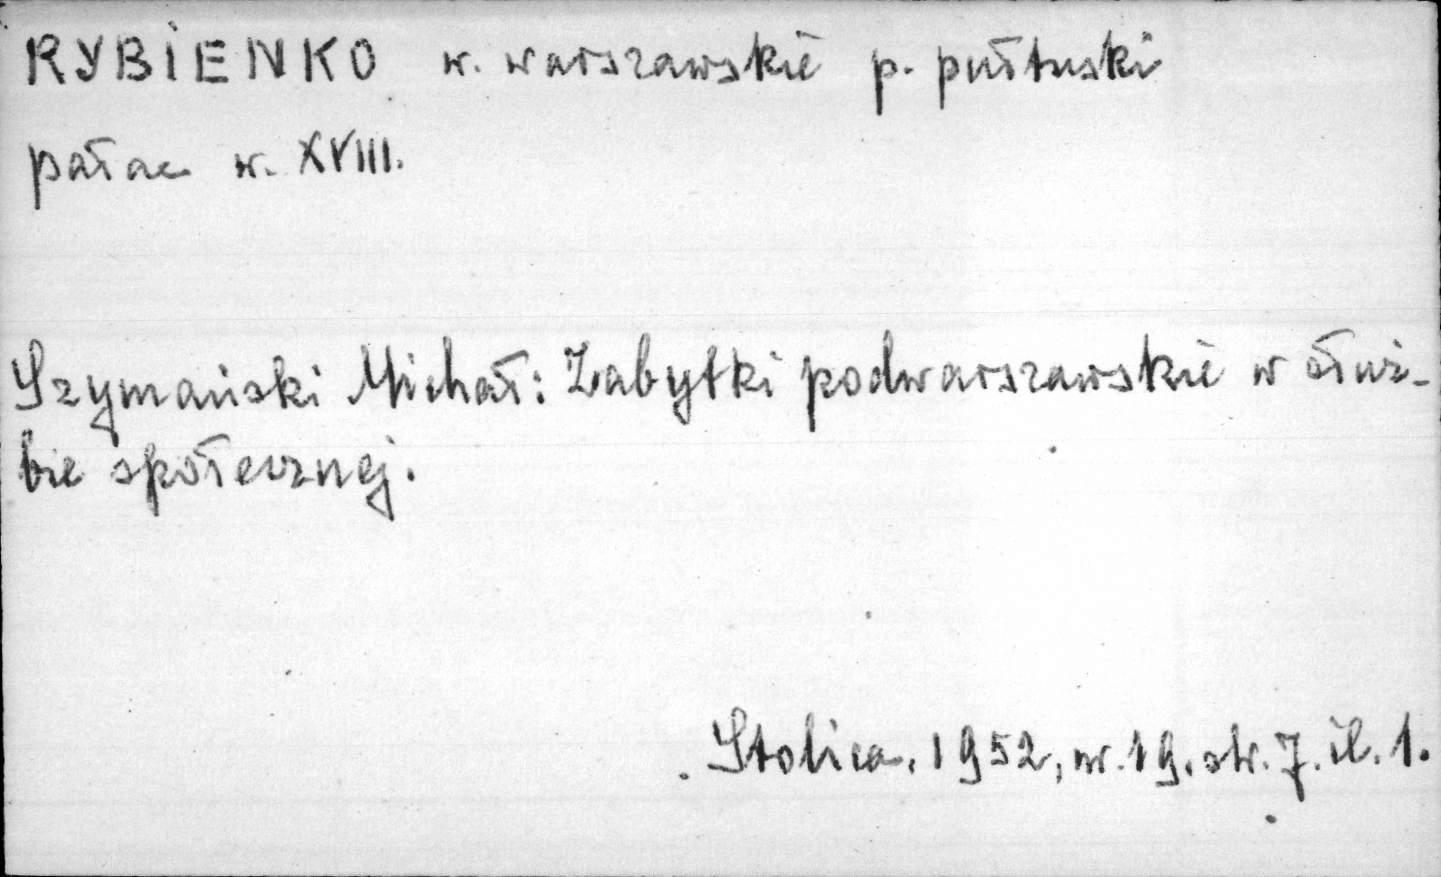 RYBIENKO w. warszawskie p. pułtuski
pałac w. XVIII.
Szymański Michał: Zabytki podwarszawskie w służ-
bie społecznej.
Stolica, 1952, nr. 19, str. 7. il. 1.